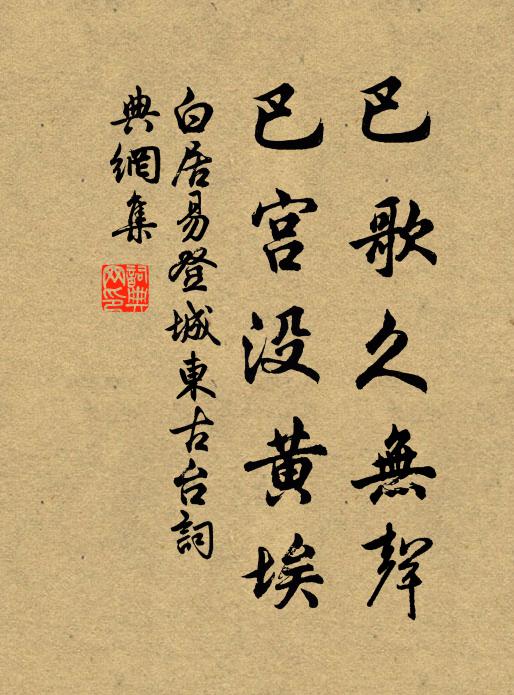 巴歌久無聲
巴宮没黄埃
白居易登城東古台詞
典網集
詞典網印